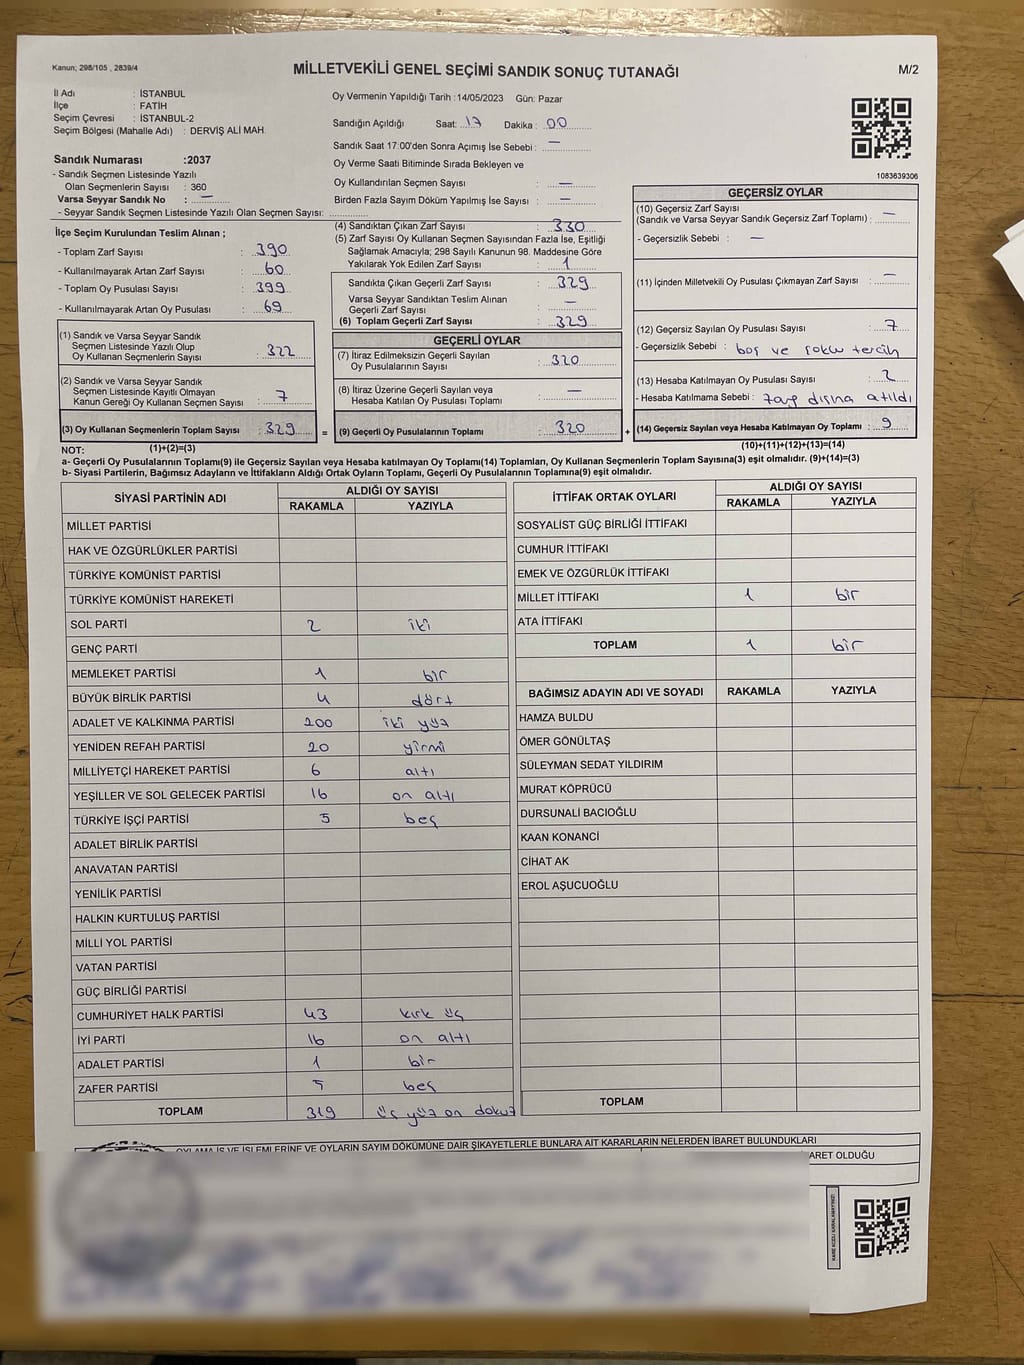 Kanun; 298/105 , 2839/4
MİLLETVEKİLİ GENEL SEÇİMİ SANDIK SONUÇ TUTANAĞI
M/2
İl Adı : İSTANBUL
İlçe : FATİH
Seçim Çevresi : İSTANBUL-2
Seçim Bölgesi (Mahalle Adı) : DERVİŞ ALİ MAH.
Sandık Numarası :2037
- Sandık Seçmen Listesinde Yazılı
Olan Seçmenlerin Sayısı : 360
Varsa Seyyar Sandık No : —
- Seyyar Sandık Seçmen Listesinde Yazılı Olan Seçmen Sayısı:
Oy Vermenin Yapıldığı Tarih :14/05/2023 Gün: Pazar
Sandığın Açıldığı Saat: 17 Dakika : 00
Sandık Saat 17:00'den Sonra Açımış İse Sebebi : —
Oy Verme Saati Bitiminde Sırada Bekleyen ve
Oy Kullandırılan Seçmen Sayısı : —
Birden Fazla Sayım Döküm Yapılmış İse Sayısı : —
1083639306
İlçe Seçim Kurulundan Teslim Alınan ;
- Toplam Zarf Sayısı : 390
- Kullanılmayarak Artan Zarf Sayısı : 60
- Toplam Oy Pusulası Sayısı : 399
- Kullanılmayarak Artan Oy Pusulası : 69
(1) Sandık ve Varsa Seyyar Sandık
Seçmen Listesinde Yazılı Olup
Oy Kullanan Seçmenlerin Sayısı : 322
(2) Sandık ve Varsa Seyyar Sandık
Seçmen Listesinde Kayıtlı Olmayan
Kanun Gereği Oy Kullanan Seçmen Sayısı : 7
(3) Oy Kullanan Seçmenlerin Toplam Sayısı : 329
(4) Sandıktan Çıkan Zarf Sayısı : 330
(5) Zarf Sayısı Oy Kullanan Seçmen Sayısından Fazla İse, Eşitliği
Sağlamak Amacıyla; 298 Sayılı Kanunun 98. Maddesine Göre
Yakılarak Yok Edilen Zarf Sayısı : 1
Sandıkta Çıkan Geçerli Zarf Sayısı : 329
Varsa Seyyar Sandıktan Teslim Alınan
Geçerli Zarf Sayısı : —
(6) Toplam Geçerli Zarf Sayısı : 329
GEÇERLİ OYLAR
(7) İtiraz Edilmeksizin Geçerli Sayılan
Oy Pusulasının Sayısı : 320
(8) İtiraz Üzerine Geçerli Sayılan veya
Hesaba Katılan Oy Pusulası Toplamı : —
= (9) Geçerli Oy Pusulalarının Toplamı : 320
GEÇERSİZ OYLAR
(10) Geçersiz Zarf Sayısı
(Sandık ve Varsa Seyyar Sandık Geçersiz Zarf Toplamı) : —
- Geçersizlik Sebebi : —
(11) İçinden Milletvekili Oy Pusulası Çıkmayan Zarf Sayısı : —
(12) Geçersiz Sayılan Oy Pusulası Sayısı : 7
- Geçersizlik Sebebi : boş ve çoklu tercih
(13) Hesaba Katılmayan Oy Pusulası Sayısı : 2
- Hesaba Katılmama Sebebi : zarf dışına atıldı
+ (14) Geçersiz Sayılan veya Hesaba Katılmayan Oy Toplamı : 9
NOT: (1)+(2)=(3) (10)+(11)+(12)+(13)=(14)
a- Geçerli Oy Pusulalarının Toplamı(9) ile Geçersiz Sayılan veya Hesaba katılmayan Oy Toplamı(14) Toplamları, Oy Kullanan Seçmenlerin Toplam Sayısına(3) eşit olmalıdır. (9)+(14)=(3)
b- Siyasi Partilerin, Bağımsız Adayların ve İttifakların Aldığı Ortak Oyların Toplamı, Geçerli Oy Pusulalarının Toplamına(9) eşit olmalıdır.
SİYASİ PARTİNİN ADI ALDIĞI OY SAYISI
RAKAMLA YAZIYLA
MİLLET PARTİSİ
HAK VE ÖZGÜRLÜKLER PARTİSİ
TÜRKİYE KOMÜNİST PARTİSİ
TÜRKİYE KOMÜNİST HAREKETİ
SOL PARTİ 2 iki
GENÇ PARTİ
MEMLEKET PARTİSİ 1 bir
BÜYÜK BİRLİK PARTİSİ 4 dört
ADALET VE KALKINMA PARTİSİ 200 iki yüz
YENİDEN REFAH PARTİSİ 20 yirmi
MİLLİYETÇİ HAREKET PARTİSİ 6 altı
YEŞİLLER VE SOL GELECEK PARTİSİ 16 on altı
TÜRKİYE İŞÇİ PARTİSİ 5 beş
ADALET BİRLİK PARTİSİ
ANAVATAN PARTİSİ
YENİLİK PARTİSİ
HALKIN KURTULUŞ PARTİSİ
MİLLİ YOL PARTİSİ
VATAN PARTİSİ
GÜÇ BİRLİĞİ PARTİSİ
CUMHURİYET HALK PARTİSİ 43 kırk üç
İYİ PARTİ 16 on altı
ADALET PARTİSİ 1 bir
ZAFER PARTİSİ 5 beş
TOPLAM 319 üç yüz on dokuz
İTTİFAK ORTAK OYLARI ALDIĞI OY SAYISI
RAKAMLA YAZIYLA
SOSYALİST GÜÇ BİRLİĞİ İTTİFAKI
CUMHUR İTTİFAKI
EMEK VE ÖZGÜRLÜK İTTİFAKI
MİLLET İTTİFAKI 1 bir
ATA İTTİFAKI
TOPLAM 1 bir
BAĞIMSIZ ADAYIN ADI VE SOYADI RAKAMLA YAZIYLA
HAMZA BULDU
ÖMER GÖNÜLTAŞ
SÜLEYMAN SEDAT YILDIRIM
MURAT KÖPRÜCÜ
DURSUNALİ BACIOĞLU
KAAN KONANCİ
CİHAT AK
EROL AŞUCUOĞLU
TOPLAM
OYLAMA İŞ VE İŞLEMLERİNE VE OYLARIN SAYIM DÖKÜMÜNE DAİR ŞİKAYETLERLE BUNLARA AİT KARARLARIN NELERDEN İBARET BULUNDUKLARI
ARET OLDUĞU